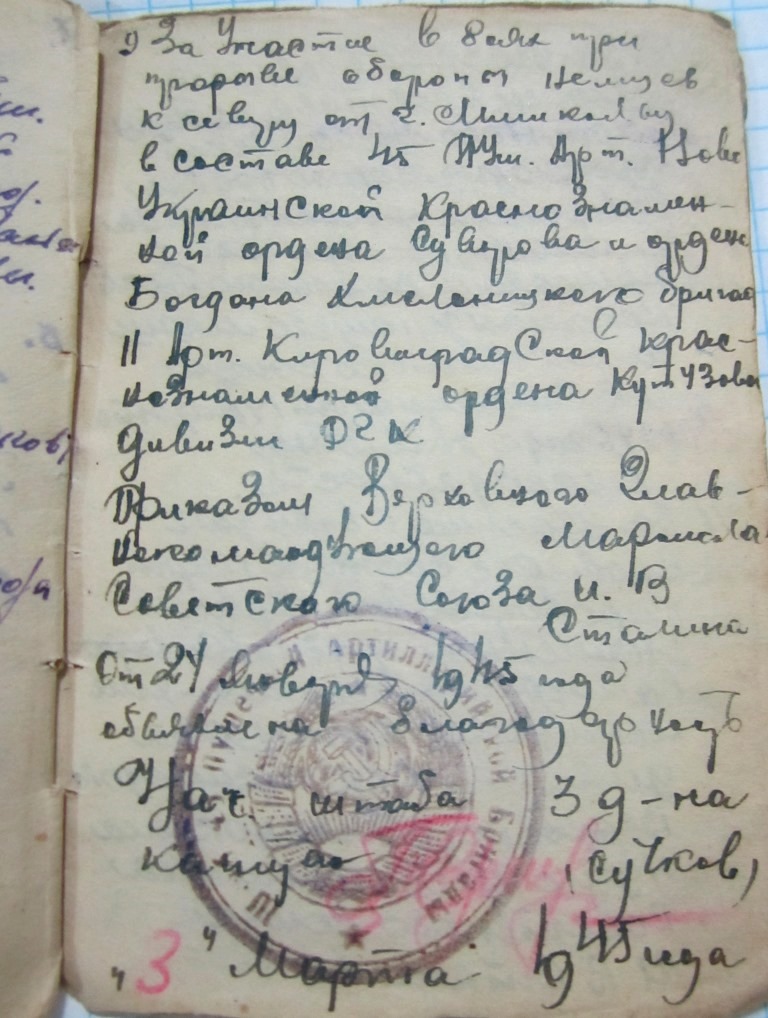 9 За участие в боях при
прорыве обороны немцев
к северу от г. Мишкольц
в составе 45 Пуш. Арт. Ново
Украинской краснознамен-
ной ордена Суворова и орден
Богдана Хмельницкого бригад
II Арт. Кировоградской крас-
нознаменной ордена Кутузова
дивизии РГК
Приказом Верховного Глав-
нокомандующего Маршала
Советского Союза И. В
Сталина
от 24 января 1945 года
объявлена благодарность
Нач. штаба 3 д-на
капитан (Сучков)
"3" Марта 1945 года
Пушечной Артиллерийской Бригады